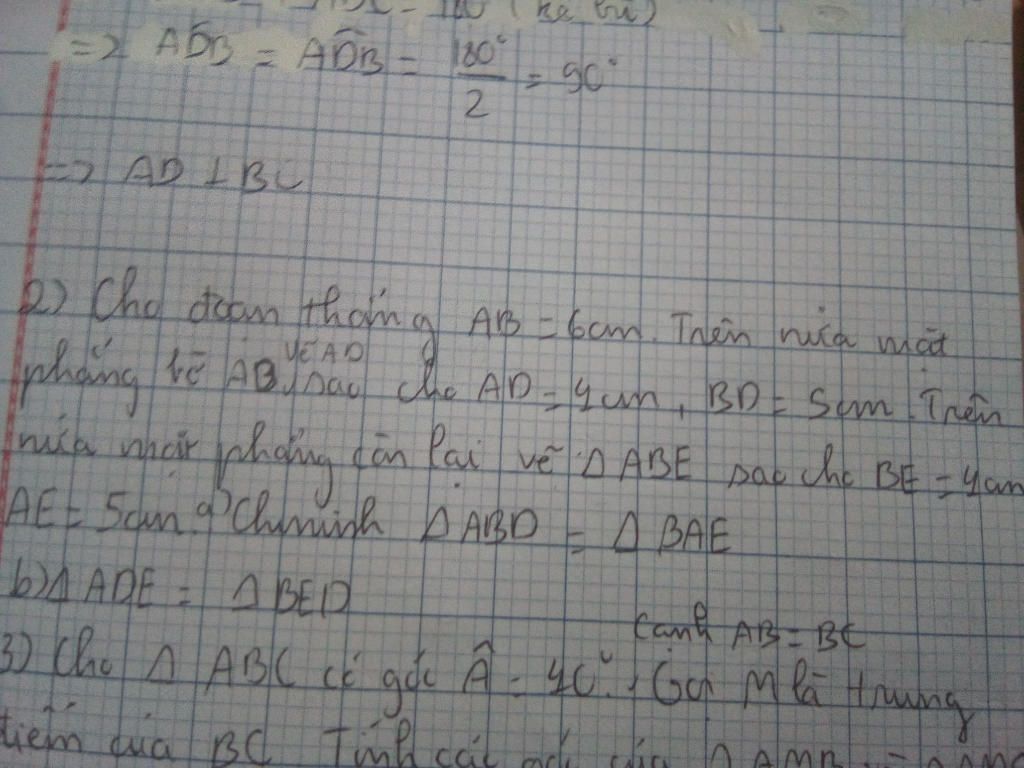 = 180° (kề bù)
=> ADB = ADB = 180°/2 = 90°
=> AD ⊥ BC
2) Cho đoạn thẳng AB = 6cm. Trên nửa mặt
phẳng bờ AB vẽ AD sao cho AD = 4cm, BD = 5cm. Trên
nửa mặt phẳng còn lại vẽ Δ ABE sao cho BE = 4cm
AE = 5cm. a) Chminh Δ ABD = Δ BAE
b) Δ ADE = Δ BED
cạnh AB = BC
3) Cho Δ ABC có góc Â = 40°. Gọi M là trung
điểm của BC Tính các góc của Δ AMB